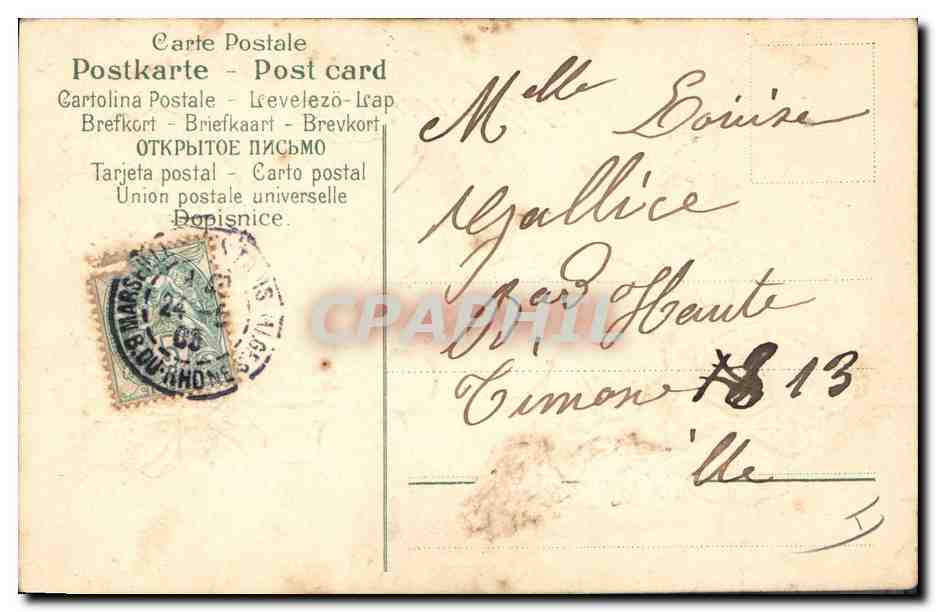 Carte Postale
Postkarte - Post card
Cartolina Postale - Levelezö-Lap
Brefkort - Briefkaart - Brevkort
ОТКРЫТОЕ ПИСЬМО
Tarjeta postal - Carto postal
Union postale universelle
Dopisnice.
MARSEILLE
24
05
B. DU-RHONE
CPAPHIL
Melle Louise
Gallice
Bard Haute
Timone 13
lle